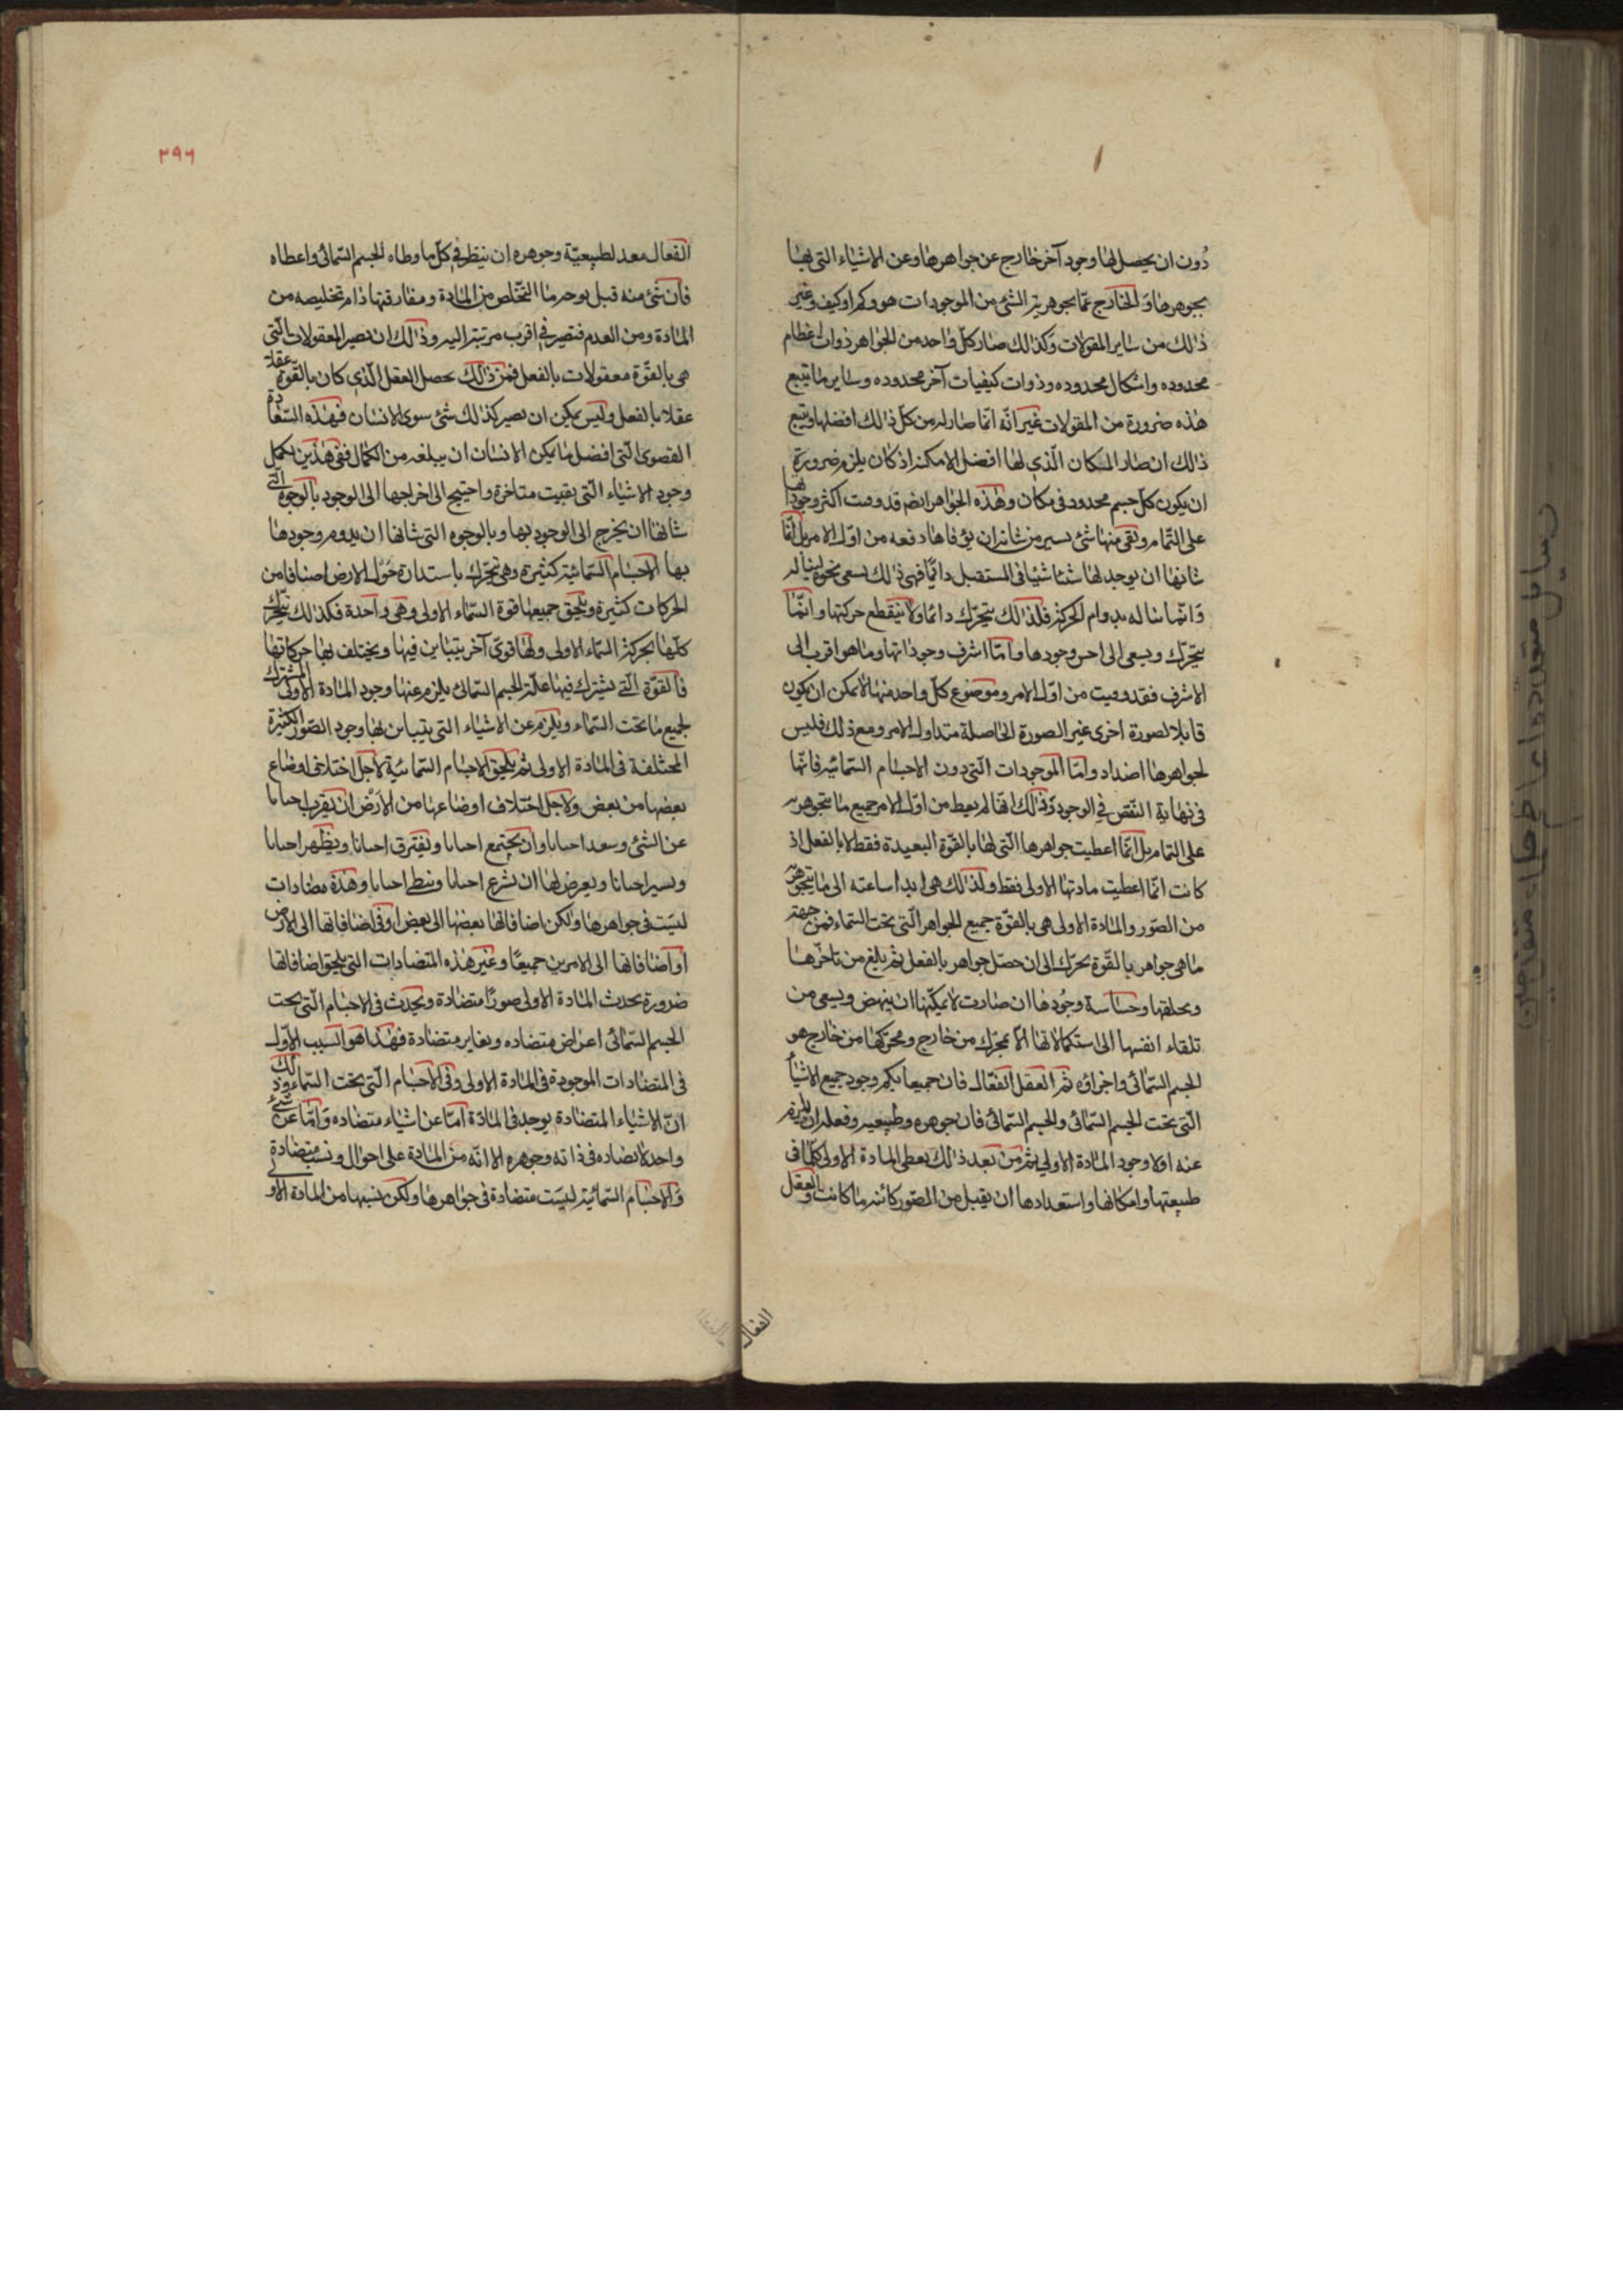 دون ان يحصل لها وجود آخر خارج عن جواهرها وعن الاشياء التى بها
بجوهرها والخارج عما بجوهرية الشئ من الموجودات هو وكم او كيف وغير
ذلك من ساير المقولات وكذلك صار كل واحد من الجواهر ذوات اعظام
محدوده واشكال محدوده وذوات كيفيات آخر محدوده وساير ما يتبع
هذه ضرورة من المقولات غير انه انما صار له من كل ذلك افضلها ويتبع
ذلك ان صار المكان الذى لها افضل الامكنة اذ كان يلزم ضرورة
ان يكون كل جسم محدود فى مكان وهذه الجواهر ايضم قد وفيت اكثر وجوداتها
على التمام وبقى منها شئ يسير من شانه ان يوفاها دفعه من اول الامر بل انما
شانها ان يوجد لها شئا شيئا فى المستقبل دائما فهى ذلك يسعى نحوه لينا له
وانما تنا له بدوام الحركة فلذلك يتحرك دائما ولا ينقطع حركتها وانما
يتحرك ويسعى الى احسن وجودها واما اشرف وجوداتها وما هو اقرب الى
الاشرف فقد وفيت من اول الامر وموضوع كل واحد منها لا يمكن ان يكون
قابلا لصورة اخرى غير الصورة الحاصلة منذ اول الامر ومع ذلك فليس
لجواهرها اضداد واما الموجودات التى دون الاجسام السمائية فانها
فى نهاية النقص فى الوجود وذلك انها لم يعط من اول الامر جميع ما يتجوهر به
على التمام بل انما اعطيت جواهرها التى لها بالقوة البعيدة فقط لا بالفعل اذ
كانت انما اعطيت مادتها الاولى فقط ولذلك هى ابدا ساعته الى ما يتجوهر به
من الصور والمادة الاولى هى بالقوة جميع الجواهر التى تحت السماء فمن جهة
ما هى جواهر بالقوة تحرك الى ان حصل جواهر بالفعل ثم بلغ من تاخرها
وتخلفها وخساسة وجودها ان صارت لا يمكنها ان ينهض ويسعى من
تلقاء انفسها الى استكمالاتها الا بمحرك من خارج ومحركها من خارج هو
الجسم السمائى واجزاؤه ثم العقل الفعال فان جميعا يكمر وجود جميع الاشياء
التى تحت الجسم السمائى والجسم السمائى فان جوهره وطبيعيه وفعله ان يلزم
عنه اولا وجود المادة الاولى ثم من بعد ذلك يعطى المادة الاولى كلما فى
طبيعتها وامكانها واستعدادها ان يقبل من الصور كائنه ما كانت والعقل
الفعال
٢٩٦
الفعال معد لطبيعية وجوهره ان ينظر فى كل ما وطاه الجسم السمائى واعطاه
فان شئ منه قبل بوجه ما التخلص من المادة ومفارقتها رام تخليصه من
المادة ومن العدم فتصير فى اقرب مرتبته اليه وذلك ان تصير المعقولات التى
هى بالقوة معقولات بالفعل فمن ذلك يحصل العقل الذى كان بالقوة عقلا
عقلا بالفعل وليس يمكن ان يصير كذلك شئ سوى الانسان فهذه السعادة
القصوى التى افضل ما يمكن الانسان ان يبلغه من الكمال ففى هذين يكمل
وجود الاشياء التى بقيت متاخرة واحتيج الى اخراجها الى الوجود بالوجوه التى
شانها ان يخرج الى الوجود بها وبالوجوه التى شانها ان يدوم وجودها
بها الاجسام السمائية كثيرة وهى تتحرك باستدارة حول الارض اصنافا من
الحركات كثيرة ويلحق جميعها قوة السماء الاولى وهى واحدة فكذلك يتحرك
كلها بحركة السماء الاولى ولها قوى آخر يتباين فيها ويختلف بها حركاتها
فالقوة التى يشترك فيها علة الجسم السمائى يلزم عنها وجود المادة الاولى المشتركة
لجميع ما تحت السماء ويلزم عن الاشياء التى يتباين بها وجود الصور الكثيرة
المختلفة فى المادة الاولى ثم يلحق الاجسام السمائية لاجل اختلاف اوضاع
بعضها من بعض ولاجل اختلاف اوضاعها من الارض ان يقرب احيانا
عن الشئ وسعد احيانا وان يجتمع احيانا ويفترق احيانا ويظهر احيانا
ويسير احيانا ويعرض لها ان يسرع احيانا ويبطى احيانا وهذه مضادات
ليست فى جواهرها ولكن اضافاتها بعضها الى بعض او فى اضافاتها الى الارض
او اضافاتها الى الامرين جميعا وعن هذه المتضادات التى يلحق اضافاتها
ضرورة يحدث المادة الاولى صورا متضادة ويحدث فى الاجسام التى تحت
الجسم السمائى اعراض متضاده وتغاير متضادة فهذا هو السبب الاول
فى المتضادات الموجودة فى المادة الاولى وفى الاجسام التى تحت السماء وذلك
ان الاشياء المتضادة يوجد فى المادة اما عن اشياء متضاده واما عن شئ
واحد لا تضاده فى ذاته وجوهره الا انه من المادة على احوال ونسب متضادة
والاجسام السمائية ليست متضادة فى جواهرها ولكن نسبها من المادة الاولى